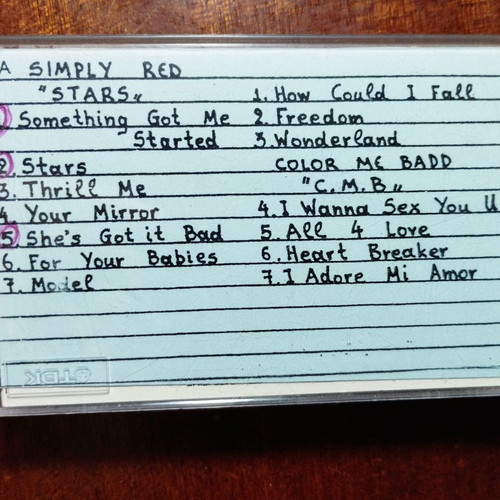 A SIMPLY RED
"STARS"
1. Something Got Me
Started
2. Stars
3. Thrill Me
4. Your Mirror
5. She's Got it Bad
6. For Your Babies
7. Model
1. How Could I Fall
2. Freedom
3. Wonderland
COLOR ME BADD
"C.M.B."
4. I Wanna Sex You U
5. All 4 Love
6. Heart Breaker
7. I Adore Mi Amor
TDK